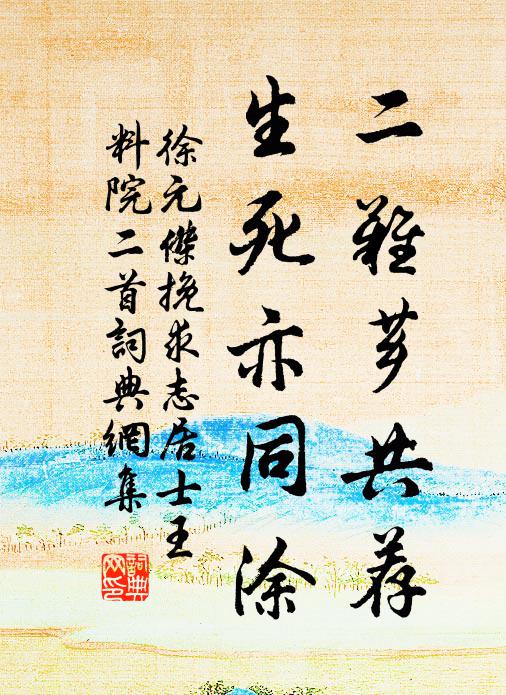 二難夢共荐
生死亦同涂
徐元傑挽求志居士王
料院二首詞典網集
詞典網印